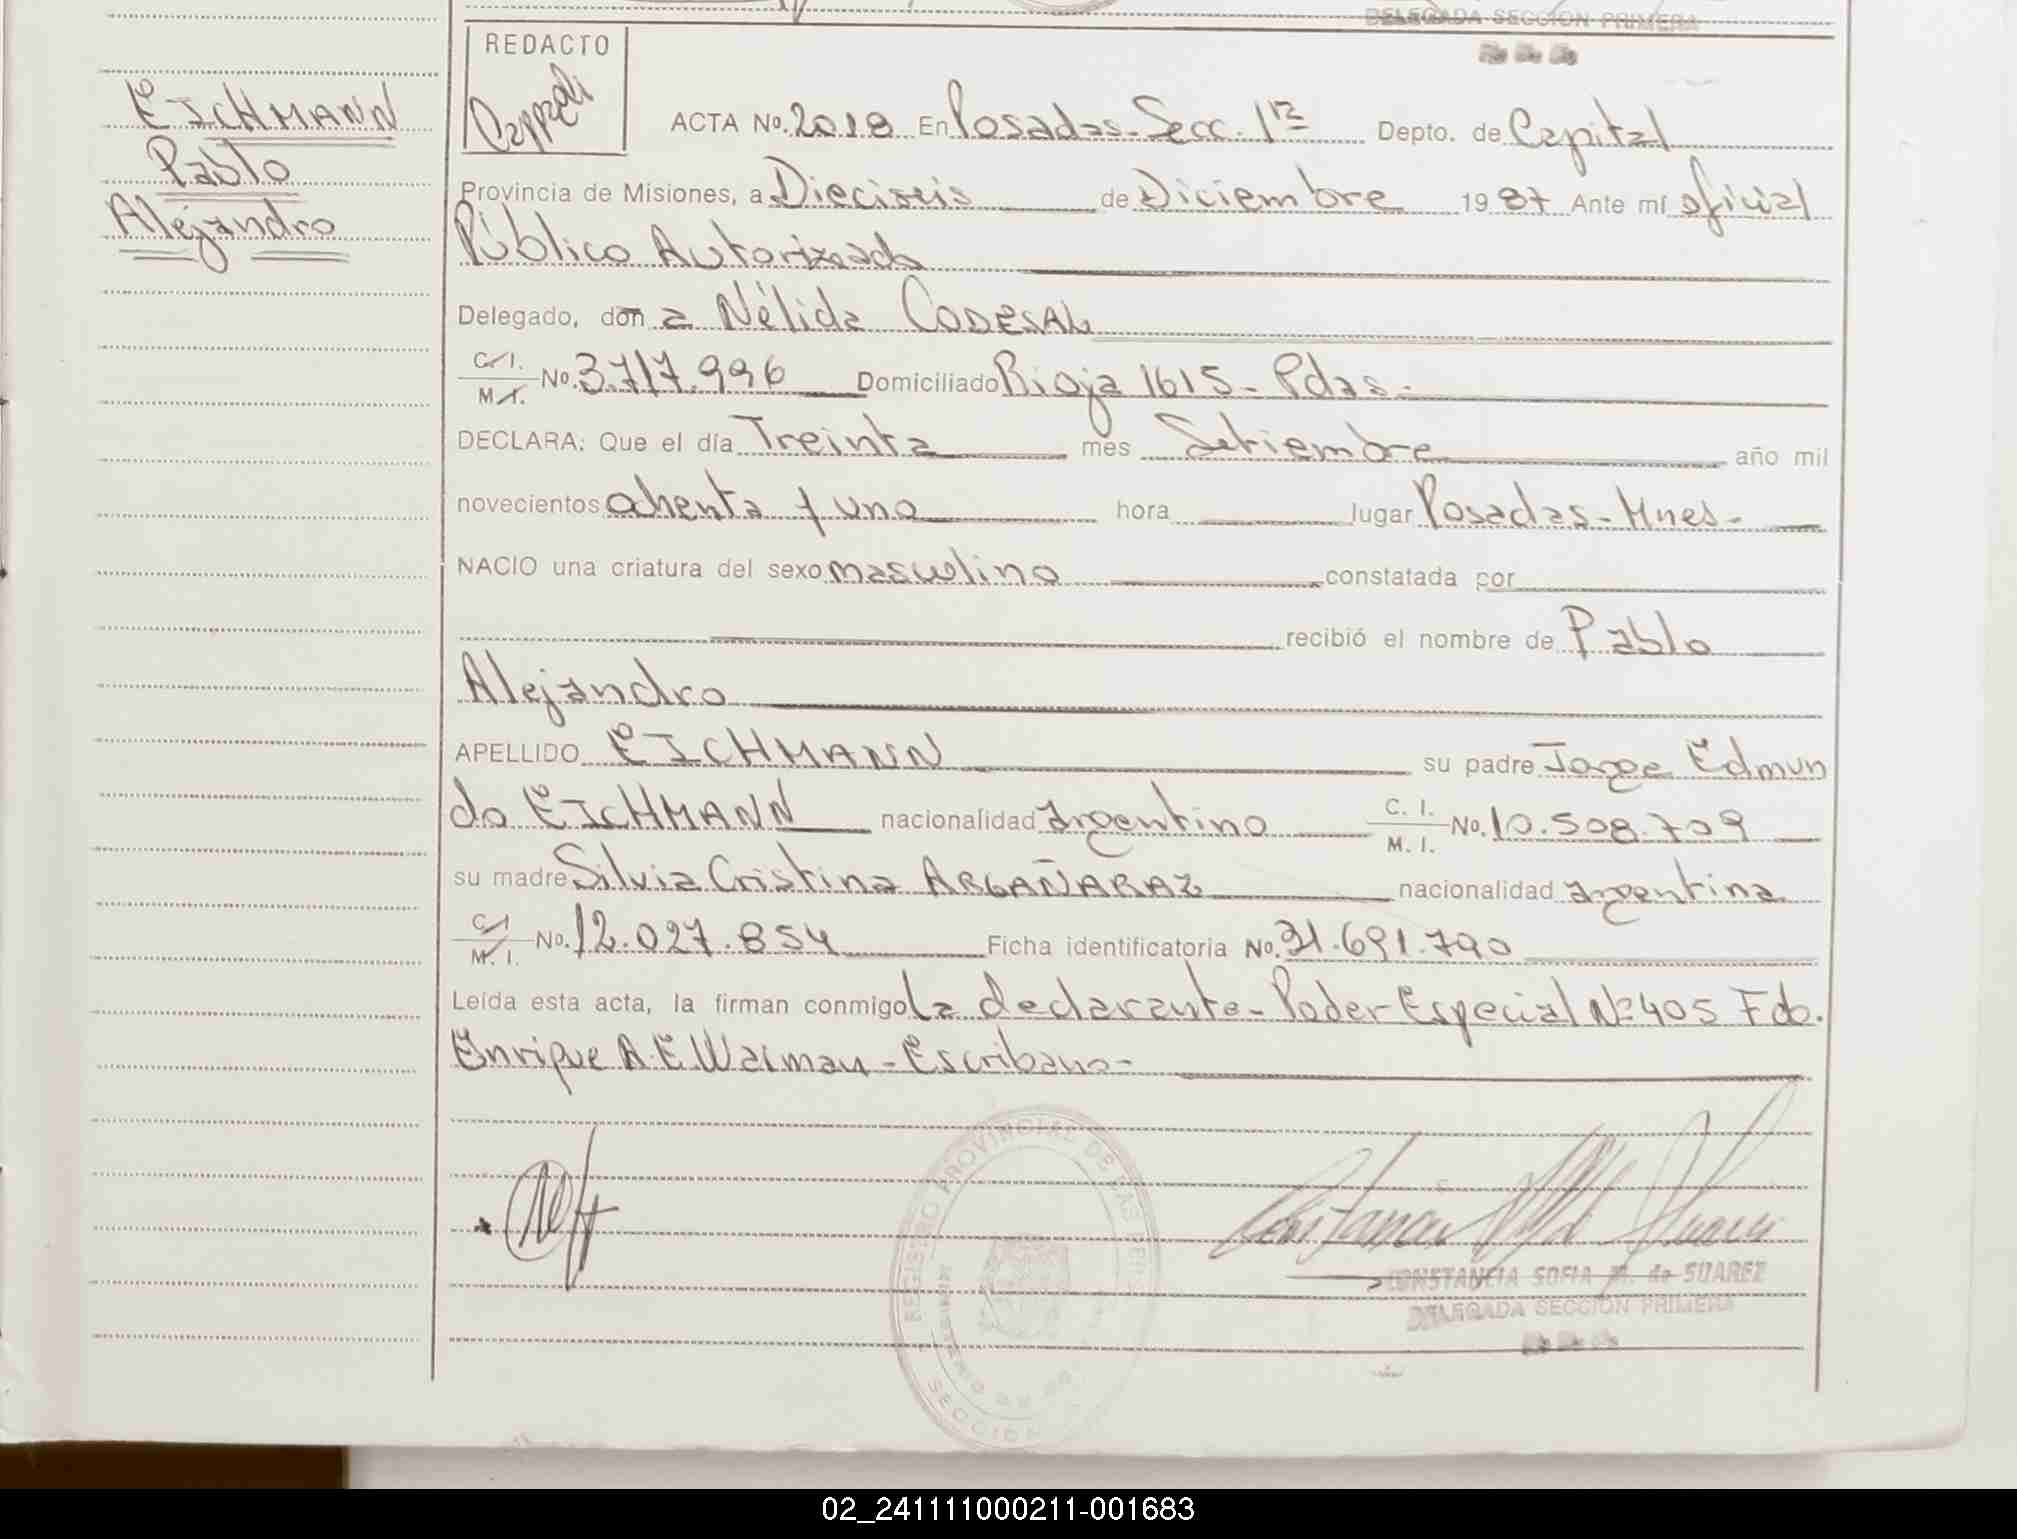 DELEGADA SECCION PRIMERA
REDACTO
EICHMANN
Pablo
Alejandro
ACTA No. 2018 En Posadas - Secc. 1ra Depto. de Capital
Provincia de Misiones, a Dieciseis de Diciembre 1987 Ante mí oficial
Público Autorizado
Delegado, don a Nélida CODESAL
C.I. M.I. No. 3.717.996 Domiciliado Rioja 1615 - Pdas -
DECLARA: Que el día Treinta mes Setiembre año mil
novecientos ochenta y uno hora lugar Posadas - Mnes -
NACIO una criatura del sexo masculino constatada por
recibió el nombre de Pablo
Alejandro
APELLIDO EICHMANN su padre Jorge Edmun
do EICHMANN nacionalidad argentino C. I. M. I. No. 10.508.709
su madre Silvia Cristina ARGAÑARAZ nacionalidad argentina
C.I. M. I. No. 12.027.854 Ficha identificatoria No. 31.691.790
Leída esta acta, la firman conmigo La declarante - Poder Especial Nº 405 Fdo.
Enrique A. E. Waiman - Escribano -
REGISTRO PROVINCIAL DE LAS PERSONAS
SECCION
CONSTANCIA SOFIA M. de SUAREZ
DELEGADA SECCION PRIMERA
02_241111000211-001683